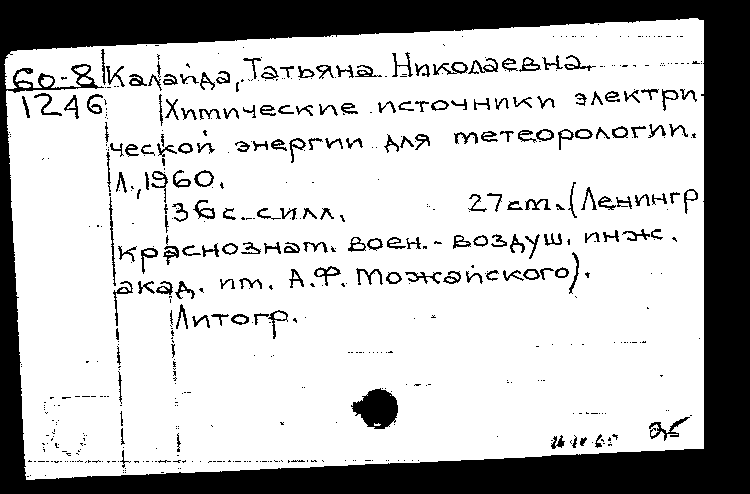 60-8 Калайда, Татьяна Николаевна.
1246 Химические источники электри-
ческой энергии для метеорологии.
Л., 1960.
36 с. с илл. 27 см. (Ленингр
краснознам. воен.-воздуш. инж.
акад. им. А.Ф. Можайского).
Литогр.